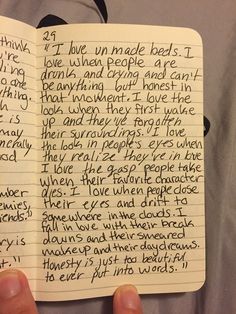 think
u're
ling
so
are
e is
may
cefully
ood
mber
emies,
iends."
ry is
29
"I love un made beds. I
love when people are
drunk and crying and can't
be anything but honest in
that moment. I love the
look when they first wake
up and they've forgotten
their surroundings. I love
the look in people's eyes when
they realize they're in love
I love the gasp people take
when their favorite character
dies. I love when people close
their eyes and drift to
somewhere in the clouds. I
fall in love with their break
downs and their smeared
makeup and their daydreams.
Honesty is just too beautiful
to ever put into words."